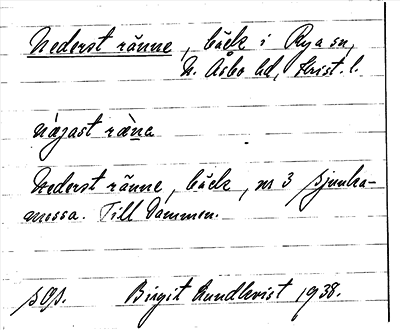 Nederst ränne, bäck i Rya sn,
N. Åsbo hd, Krist. l.
nájast ràna
Nederst ränne, bäck, nr 3 Sjunka-
mossa. Till Dammen.
sOp. Birgit Lundkvist 1938.